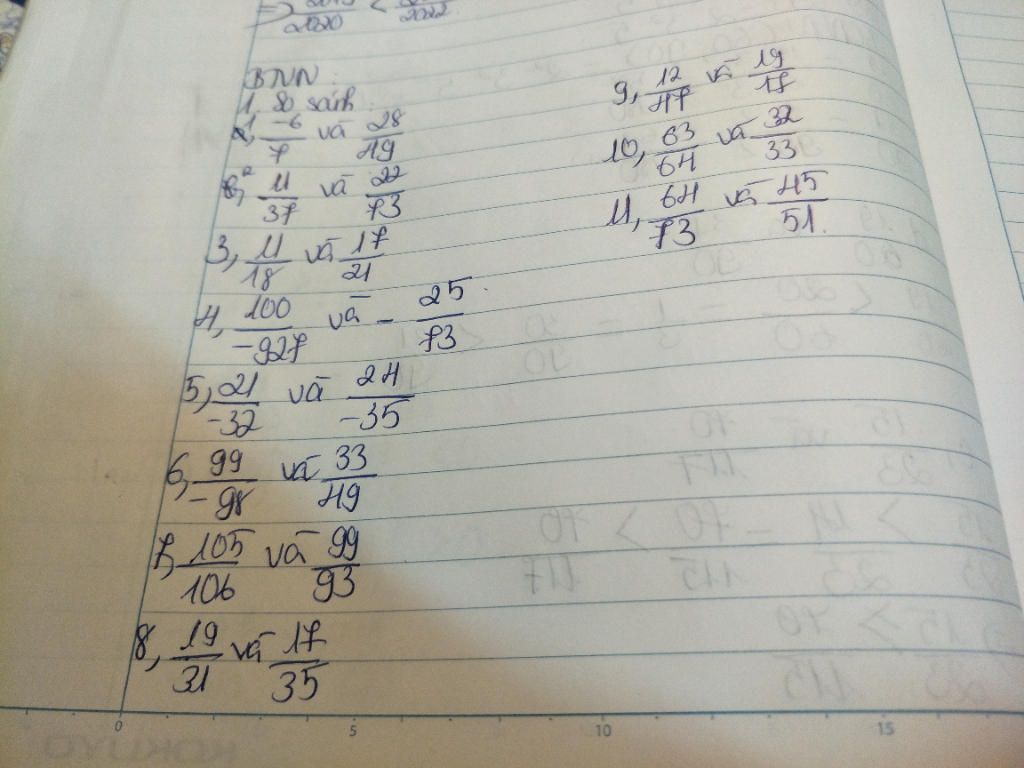 2020 < 2022
BTVN:
1. So sánh:
1, -6/7 và 28/49
2, 11/37 và 22/73
3, 11/18 và 17/21
4, 100/-927 và - 25/73
5, 21/-32 và 24/-35
6, 99/-98 và 33/49
7, 105/106 và 99/93
8, 19/31 và 17/35
9, 12/47 và 19/17
10, 63/64 và 32/33
11, 64/73 và 45/51.
0 5 10 15